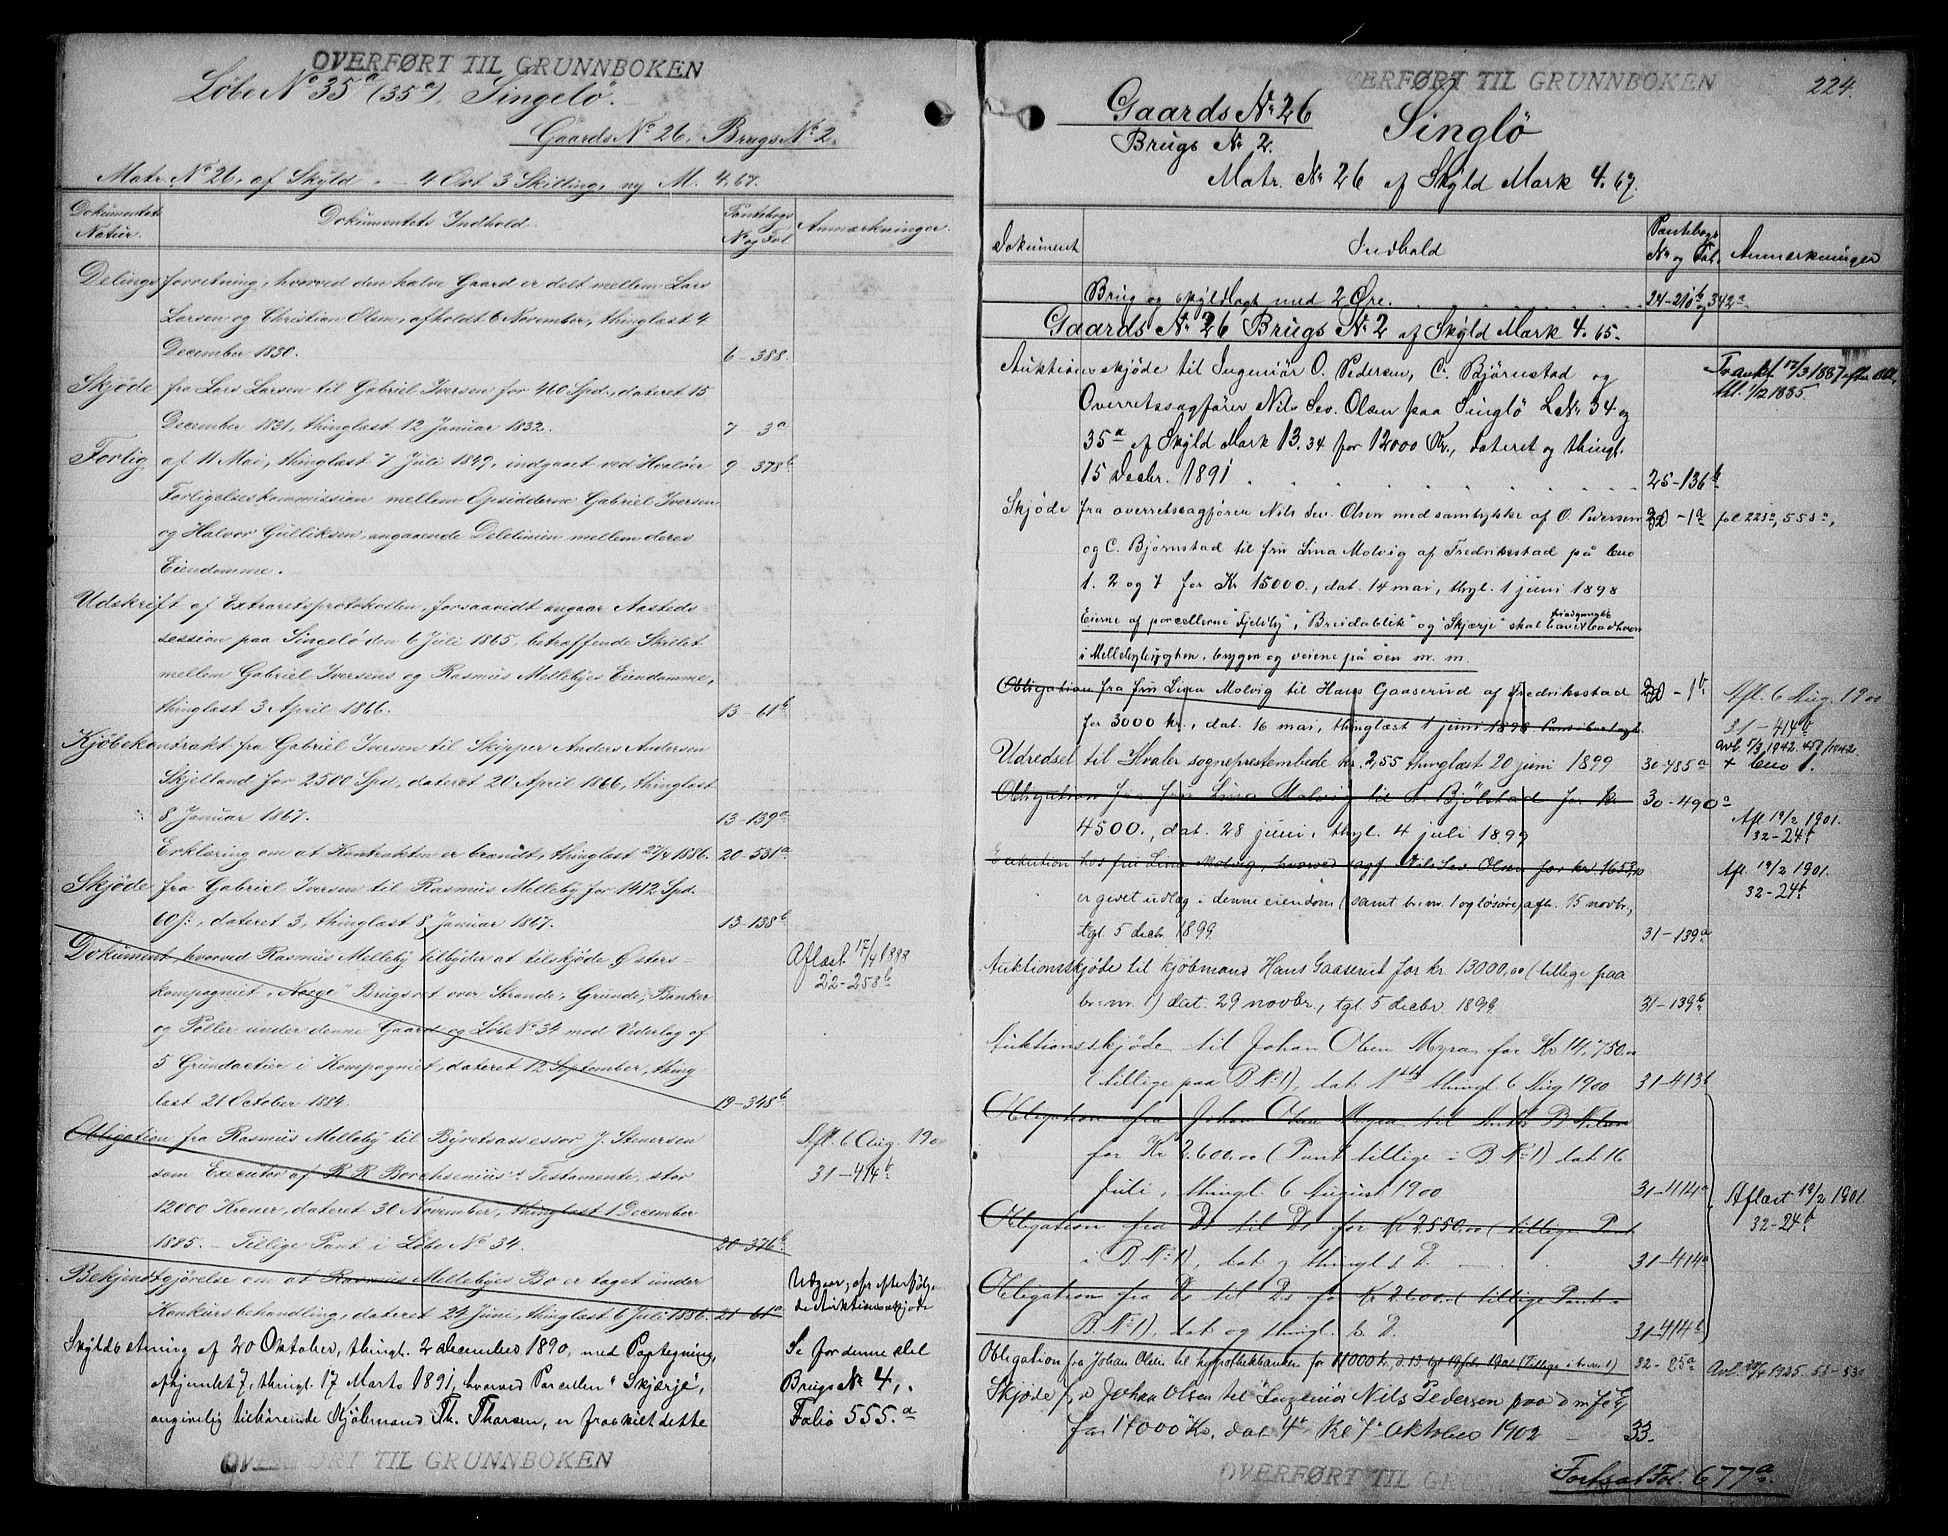 OVERFØRT TIL GRUNNBOKEN
Løbe No 35a (35a), Singelö.
Gaards No 26, Brugs No 2.
Matr. No 26, af Skyld - 4 Ort 3 Skilling, ny M. 4.67.
Dokumentets Natur. Dokumentets Indhold Pantebogs No og Fol Anmærkninger.
Delingsforretning, hvorved den halve Gaard er delt mellem Lars
Larsen og Christian Olsen, afholdt 6 November, thinglæst 4
December 1830. 6-388.
Skjøde fra Lars Larsen til Gabriel Iversen for 460 Spd., dateret 15
December 1831, thinglæst 12 Januar 1832. 7 3a
Forlig af 11 Mai, thinglæst 7 Juli 1849, indgaaet ved Hvaløer 9-378b
Forligelseskommission mellem Opsidderne Gabriel Iversen
og Halvor Gulliksen, angaaende Delelinien mellem deres
Eiendomme.
Udskrift af Extraretsprotokollen, forsaavidt angaar Aasteds
session paa Singelö den 6 Juli 1865, betræffende Skillet
mellem Gabriel Iversens og Rasmus Mellebyes Eiendomme,
thinglæst 3 April 1866. 13-61b
Kjøbekontrakt fra Gabriel Iversen til Skipper Anders Andersen
Skjelland for 2500 Spd, dateret 20 April 1866, thinglæst
8 Januar 1867. 13-139a
Erklæring om at Kontrakten er brændt, thinglæst 21/4 1886. 20-531a
Skjøde fra Gabriel Iversen til Rasmus Melleby for 1412 Spd.
60 s., dateret 3, thinglæst 8 Januar 1867. 13-138b
Dokument hvorved Rasmus Melleby tilbyder at tilskjøde Østers- Aflæst 17/4 1888
kompagniet "Norge" Brugsret over Strande, Grunde, Banker 22-258b
og Poller under denne Gaard og Løbe No 34 mod Vederlag af
5 Grundactier i Kompagniet, dateret 12 September, thing
læst 21 October 1884. 19-348b
Obligation fra Rasmus Melleby til Byretsassessor J. Stenersen Afl. 6 Aug. 1900
som Executor af R. R. Borchsenius's Testamente, stor 31-414b
12000 Kroner, dateret 30 November, thinglæst 1 December
1885. - Tillige Pant i Løbe No 34. 20-376b
Bekjendtgjørelse om at Rasmus Mellebyes Bo er taget under Udgaar, efter
Konkursbehandling, dateret 24 Juni, thinglæst 6 Juli 1886. 21-61a Auktionsskjøde
Skyldsetning af 20 Oktober, thingl. 2 december 1890, med Paategning, Se for denne del
afhjemlet 7, thingl. 17 Marts 1891, hvorved Parcellen "Skjærje", Brugs No 4,
angivelig tilhørende Kjøbmand Th. Thorsen, er fraskilt dette Folio 555.a
OVERFØRT TIL GRUNNBOKEN
OVERFØRT TIL GRUNNBOKEN 224.
Gaards No 26 Singlö
Brugs No 2.
Matr. No 26 af Skyld Mark 4.67.
Dokument Indhold Pantebogs No og Fol. Anmærkninger
Brug og skyldlagt med 2 Øre. 24-210b og 342a
Gaards No 26 Brugs No 2 af Skyld Mark 4.65.
Auktionsskjøde til Ingeniör O. Pedersen, C. Björnstad og
Overretssagfører Nils Sev. Olsen paa Singlö LNo 34 og thl. 1/2 1885.
35a af Skyld Mark 13.34 for 12000 Kr., dateret og thingl.
15 Decbr. 1891 25-136b
Skjøde fra overretssagfører Nils Sev. Olsen med samtykke af O. Pedersen 30-1a fol 223a, 553a,
og C. Bjørnstad til fru Lina Molvig af Fredriksstad på bno
1. 2 og 7 for Kr 15000., dat. 14 mai, thgl. 1 juni 1898
Eierne af parcellerne "Fjeldby", "Breidablik" og "Skjærje" skal have
i Mellebybugten, bryggen og veiene på øen m. m.
Obligation fra fru Lina Molvig til Hans Gaaserud af Fredriksstad 30-1b Afl. 6 Aug. 1900
for 3000 kr., dat. 16 mai, thinglæst 1 juni 1898 31-414b
Udredsel til Hvaler sogneprestembede kr. 2,55 thinglæst 20 juni 1899 30-485a
Obligation fra fru Lina Molvig til A. Bjölstad for kr 30-490a
4500., dat. 28 juni, thgl. 4 juli 1899 Afl. 19/2 1901. 32-24b
Exekution hos fru Lina Molvig, hvorved sagf. Nils Sev. Olsen for kr 1653,10 Afl. 19/2 1901.
er givet udlæg i denne eiendom (samt br.nr. 1 og løsøre) afh. 15 novbr., 32-24b
tgl. 5 decbr. 1899. 31-139a
Auktionsskjøde til kjøbmand Hans Gaaserud for kr. 13000,00 (tillige paa
br. nr. 1) dat. 29 novbr., tgl. 5 decbr 1899. 31-139b
Auktionsskjøde til Johan Olsen Myra for Kr 14,750.00
(tillige paa B.No 1), dat. 1ste thingl. 6 Aug 1900 31-413b
Obligation fra Johan Olsen Myra til D. Nilsen
for Kr 2.600.00 (Pant tillige i B.No 1) dat 16
Juli, thingl. 6 August 1900 31-414a Aflæst 19/2 1901.
Obligation fra Do til Do for Kr 2550.00 (tillige Pant 32-24b
i B.No 1), dat og thingl s. D. 31-414a
Obligation fra Do til Do for Kr 2600.00 (tillige Pant i
B.No 1), dat og thingl. s. D. 31-414b
Obligation fra Johan Olsen til hypothekbanken for 11000 kr. d. 13. tgl 19 feb. 1901 (Tillige i br.nr. 1) 32-25a
Skjøde fra Johan Olsen til Ingeniör Nils Pedersen paa
for 17000 Kr, dat 4de 7de Oktober 1902 33.
OVERFØRT TIL GRU
Fortsat Fol. 677a.